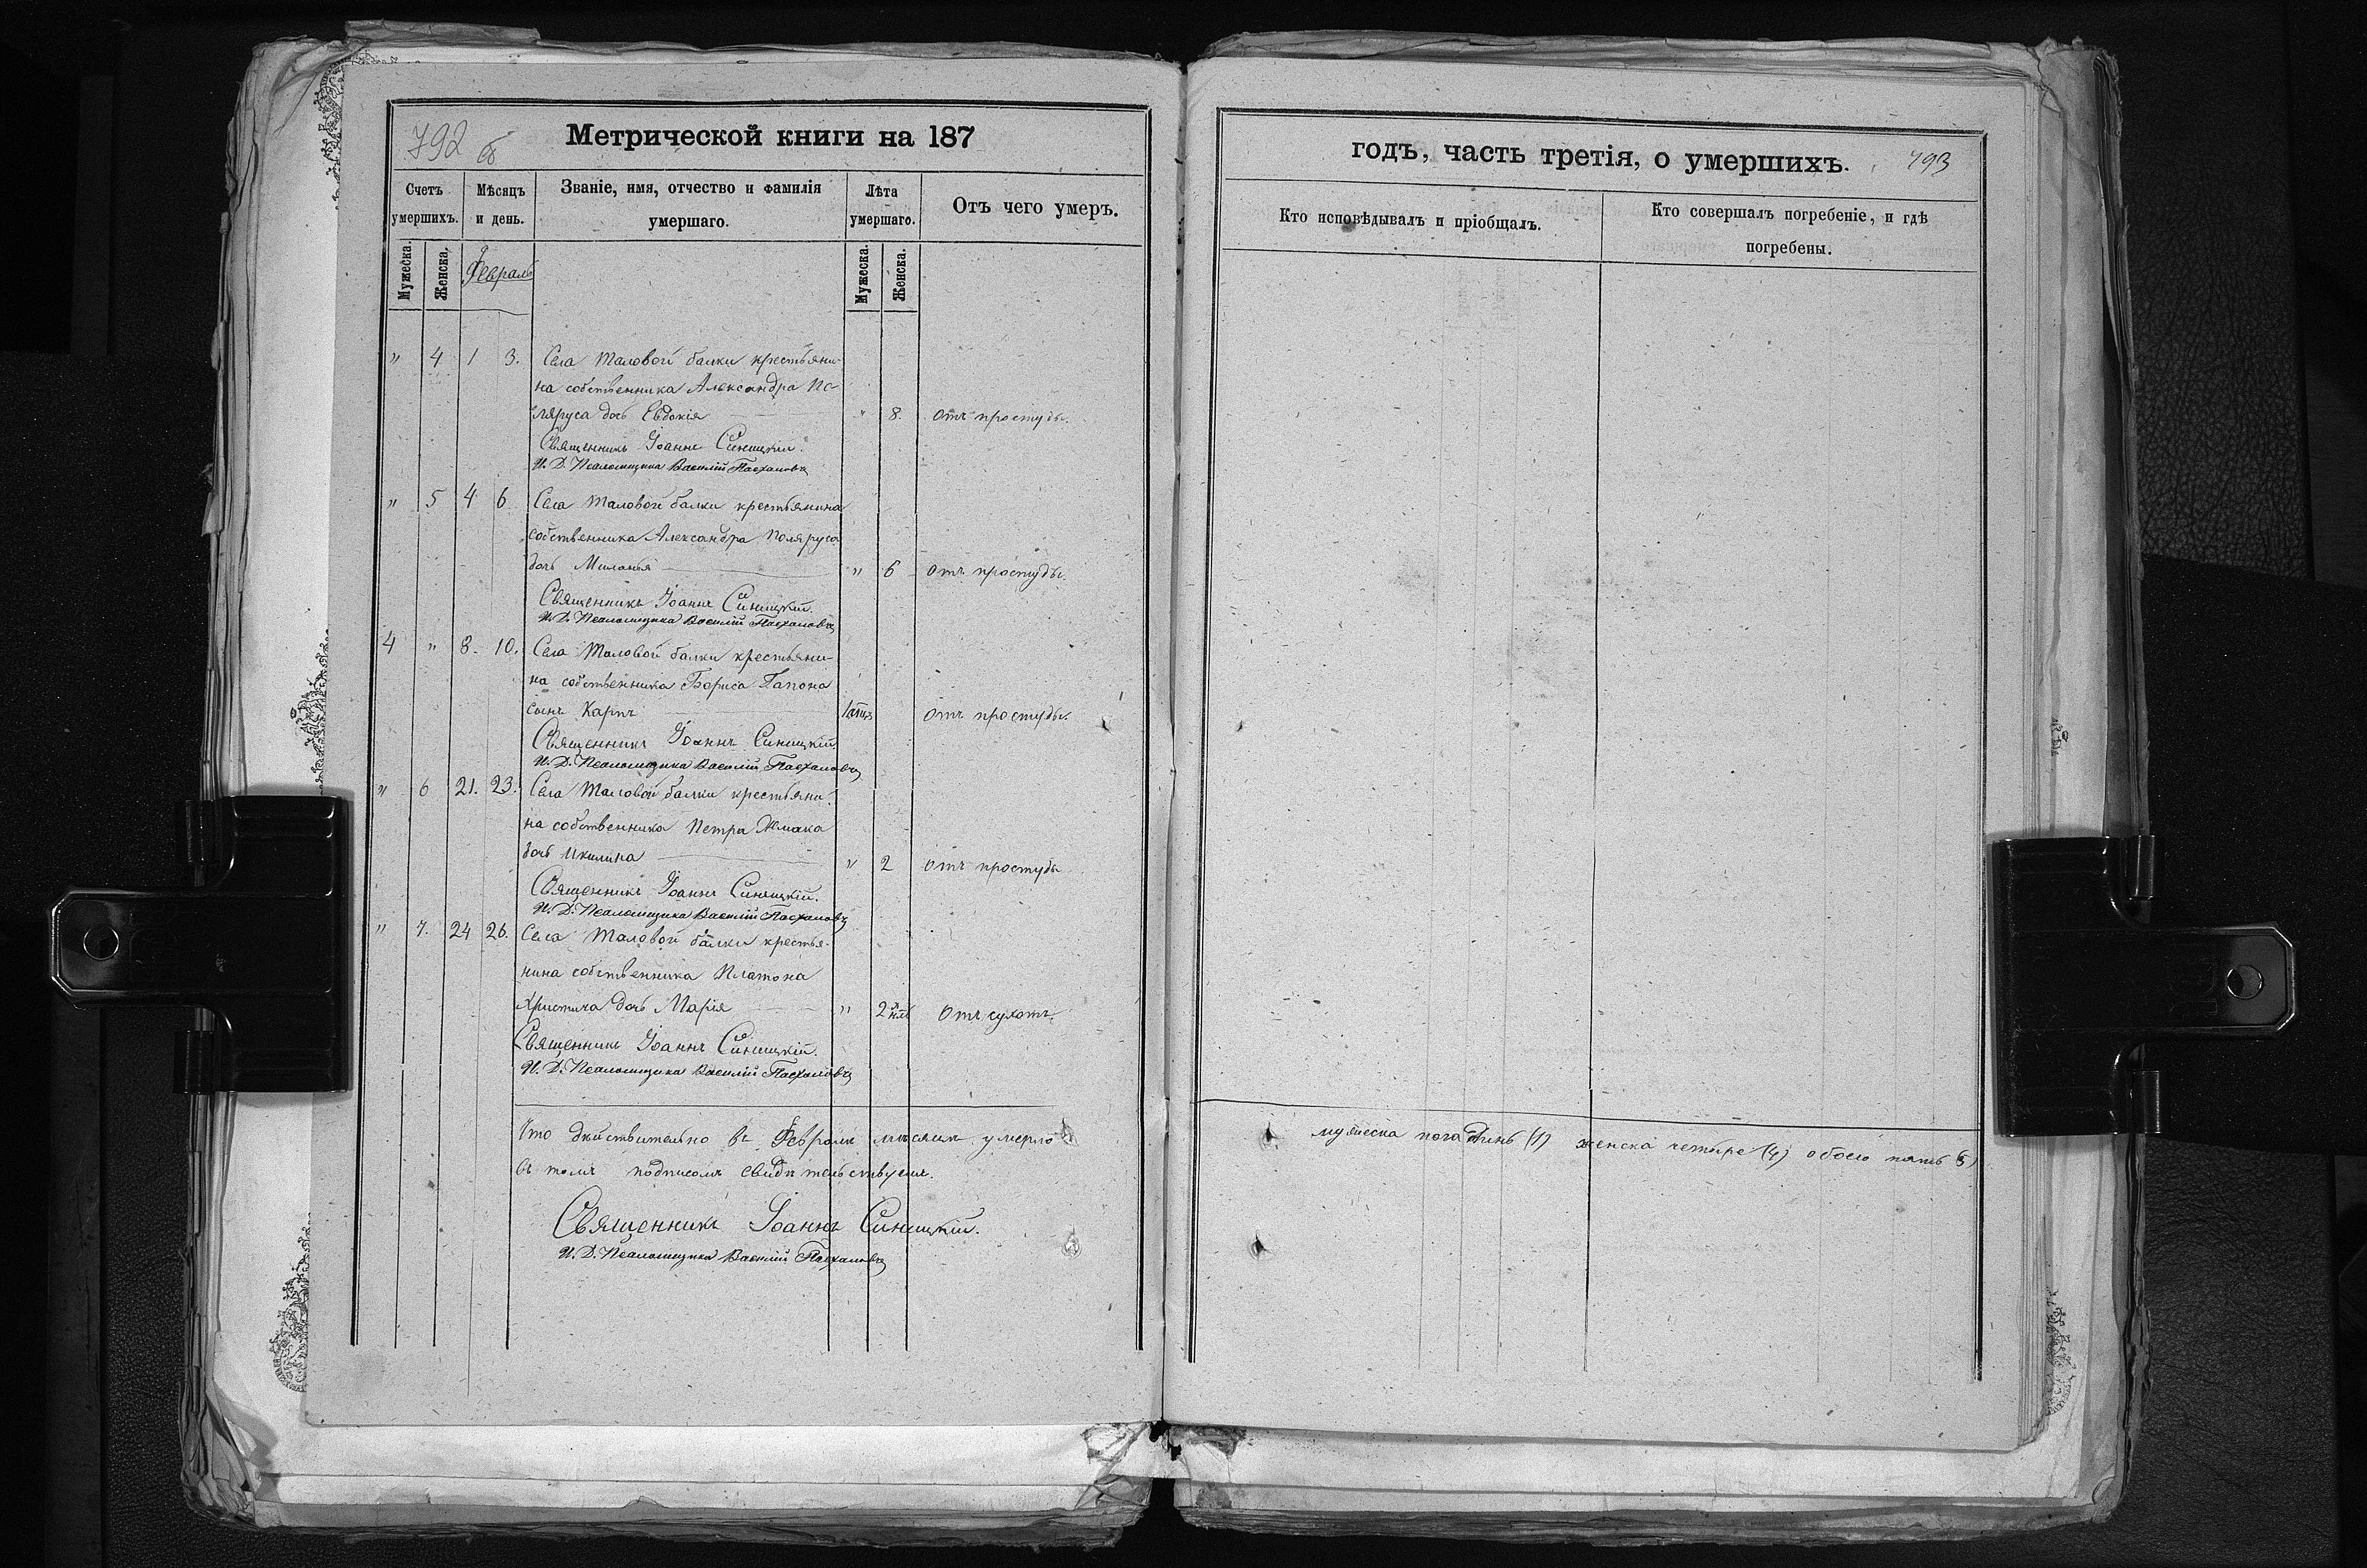 792 об
Метрической книги на 187
Счетъ умершихъ.
Мѣсяцъ и день.
Званіе, имя, отчество и фамилія умершаго.
Лѣта умершаго.
Отъ чего умеръ.
Мужеска.
Женска.
Февраль
Мужеска.
Женска.
" 4 1 3. Села Таловой балки крестьяни-
на собственника Александра По-
ляруса дочь Евдокія " 8. отъ простуды.
Священникъ Іоаннъ Синицкій.
И. Д. Псаломщика Василій Пасхаловъ
" 5 4 6 Села Таловой балки крестьянина
собственника Александра Поляруса
дочь Миланья " 6 отъ простуды.
Священникъ Іоаннъ Синицкій.
И. Д. Псаломщика Василій Пасхаловъ
4 " 8. 10. Села Таловой балки крестьяни-
на собственника Бориса Гапона
сынъ Карпъ отъ простуды.
Священникъ Іоаннъ Синицкій.
И. Д. Псаломщика Василій Пасхаловъ
" 6 21. 23. Села Таловой балки крестьяни-
на собственника Петра
дочь Акилина " 2 отъ простуды
Священникъ Іоаннъ Синицкій.
И. Д. Псаломщика Василій Пасхаловъ
" 7. 24 26. Села Таловой балки крестья-
нина собственника Платона
Христича дочь Марія " 2 нед отъ сухотъ.
Священникъ Іоаннъ Синицкій.
И. Д. Псаломщика Василій Пасхаловъ
Что дѣйствительно въ Февралѣ мѣсяцѣ умерло
въ томъ подписомъ свидѣтельствуемъ.
Священникъ Іоаннъ Синицкій.
И. Д. Псаломщика Василій Пасхаловъ
годъ, часть третія, о умершихъ.
793
Кто исповѣдывалъ и пріобщалъ.
Кто совершалъ погребеніе, и гдѣ погребены.
мужеска пола одинъ (1) женска четыре (4) обоего пять (5)